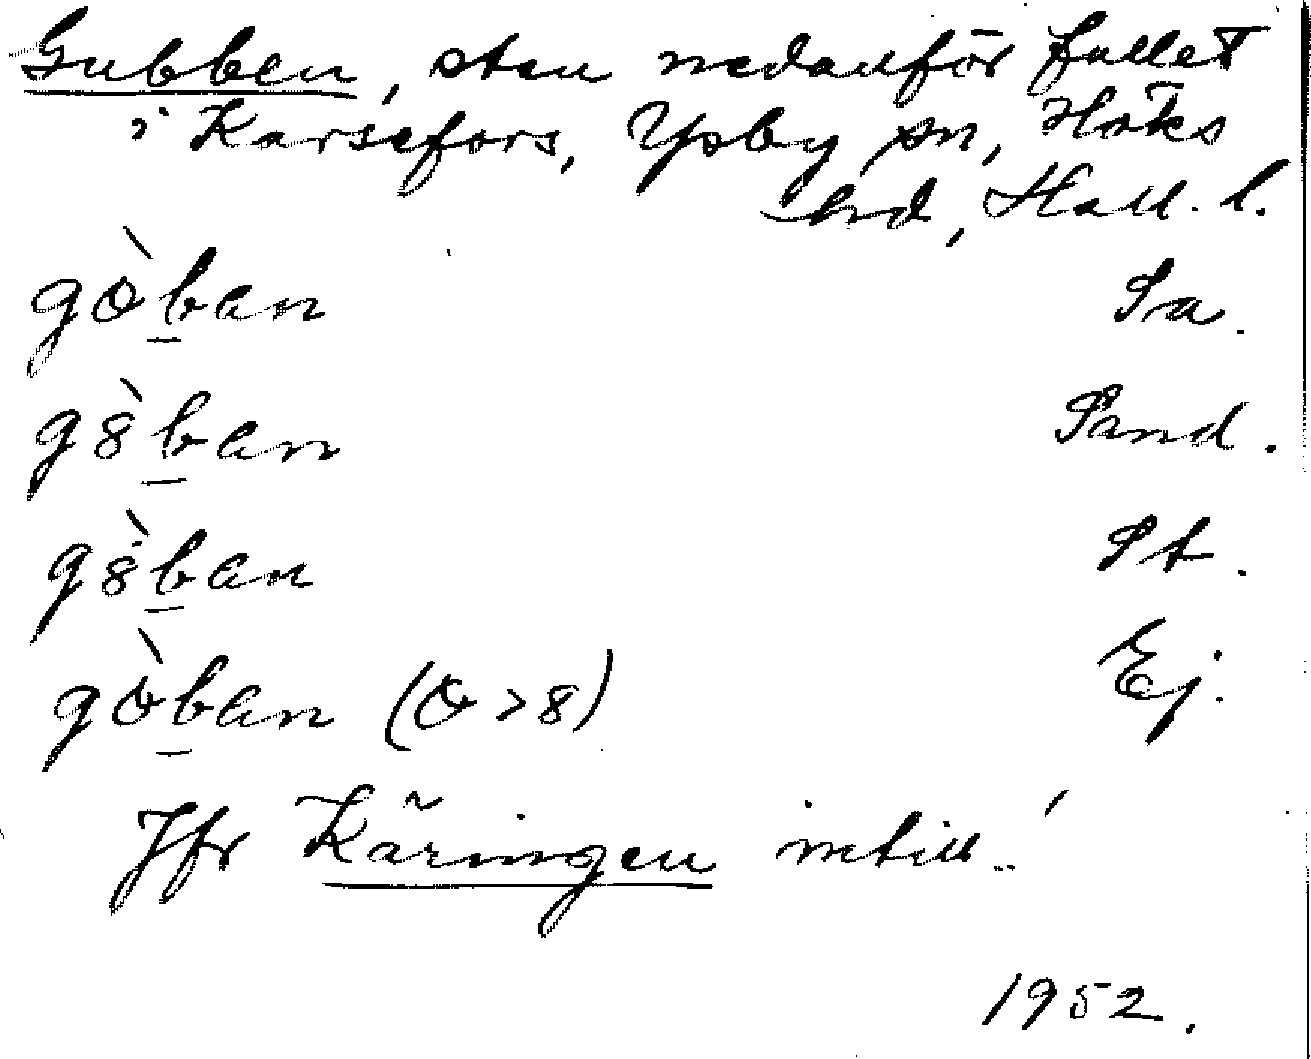 Gubben, sten nedanför fallet
i Karsefors, Ysby sn, Höks
hrd, Hall. l.
gòban Sa.
g8̀ban Sand.
g8̀ban St.
gòban (o > 8) Ej.
Jfr Käringen intill.
1952.